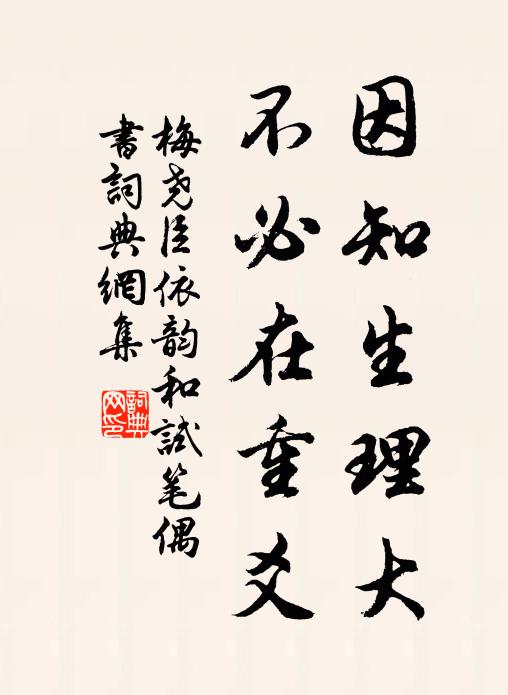 因知生理大
不必在重爻
梅尧臣依韵和試笔偶
書詞典網集
詞典网印